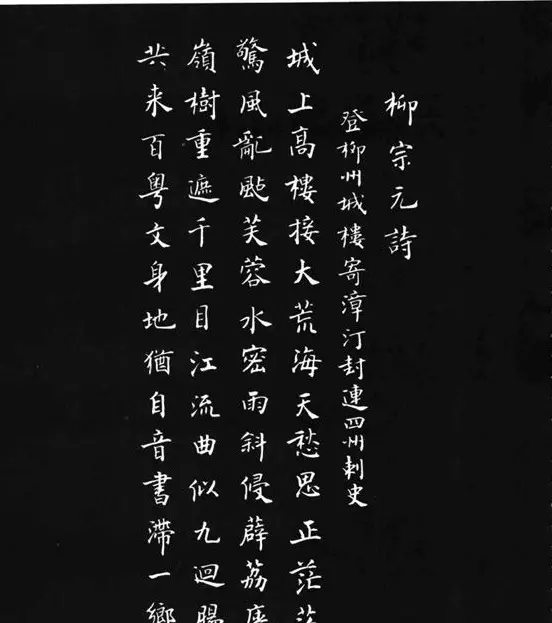 柳宗元詩
登柳州城樓寄漳汀封連四州刺史
城上高樓接大荒海天愁思正茫茫
驚風亂颭芙蓉水密雨斜侵薜荔
嶺樹重遮千里目江流曲似九迴腸
共来百粵文身地猶自音書滯一鄉